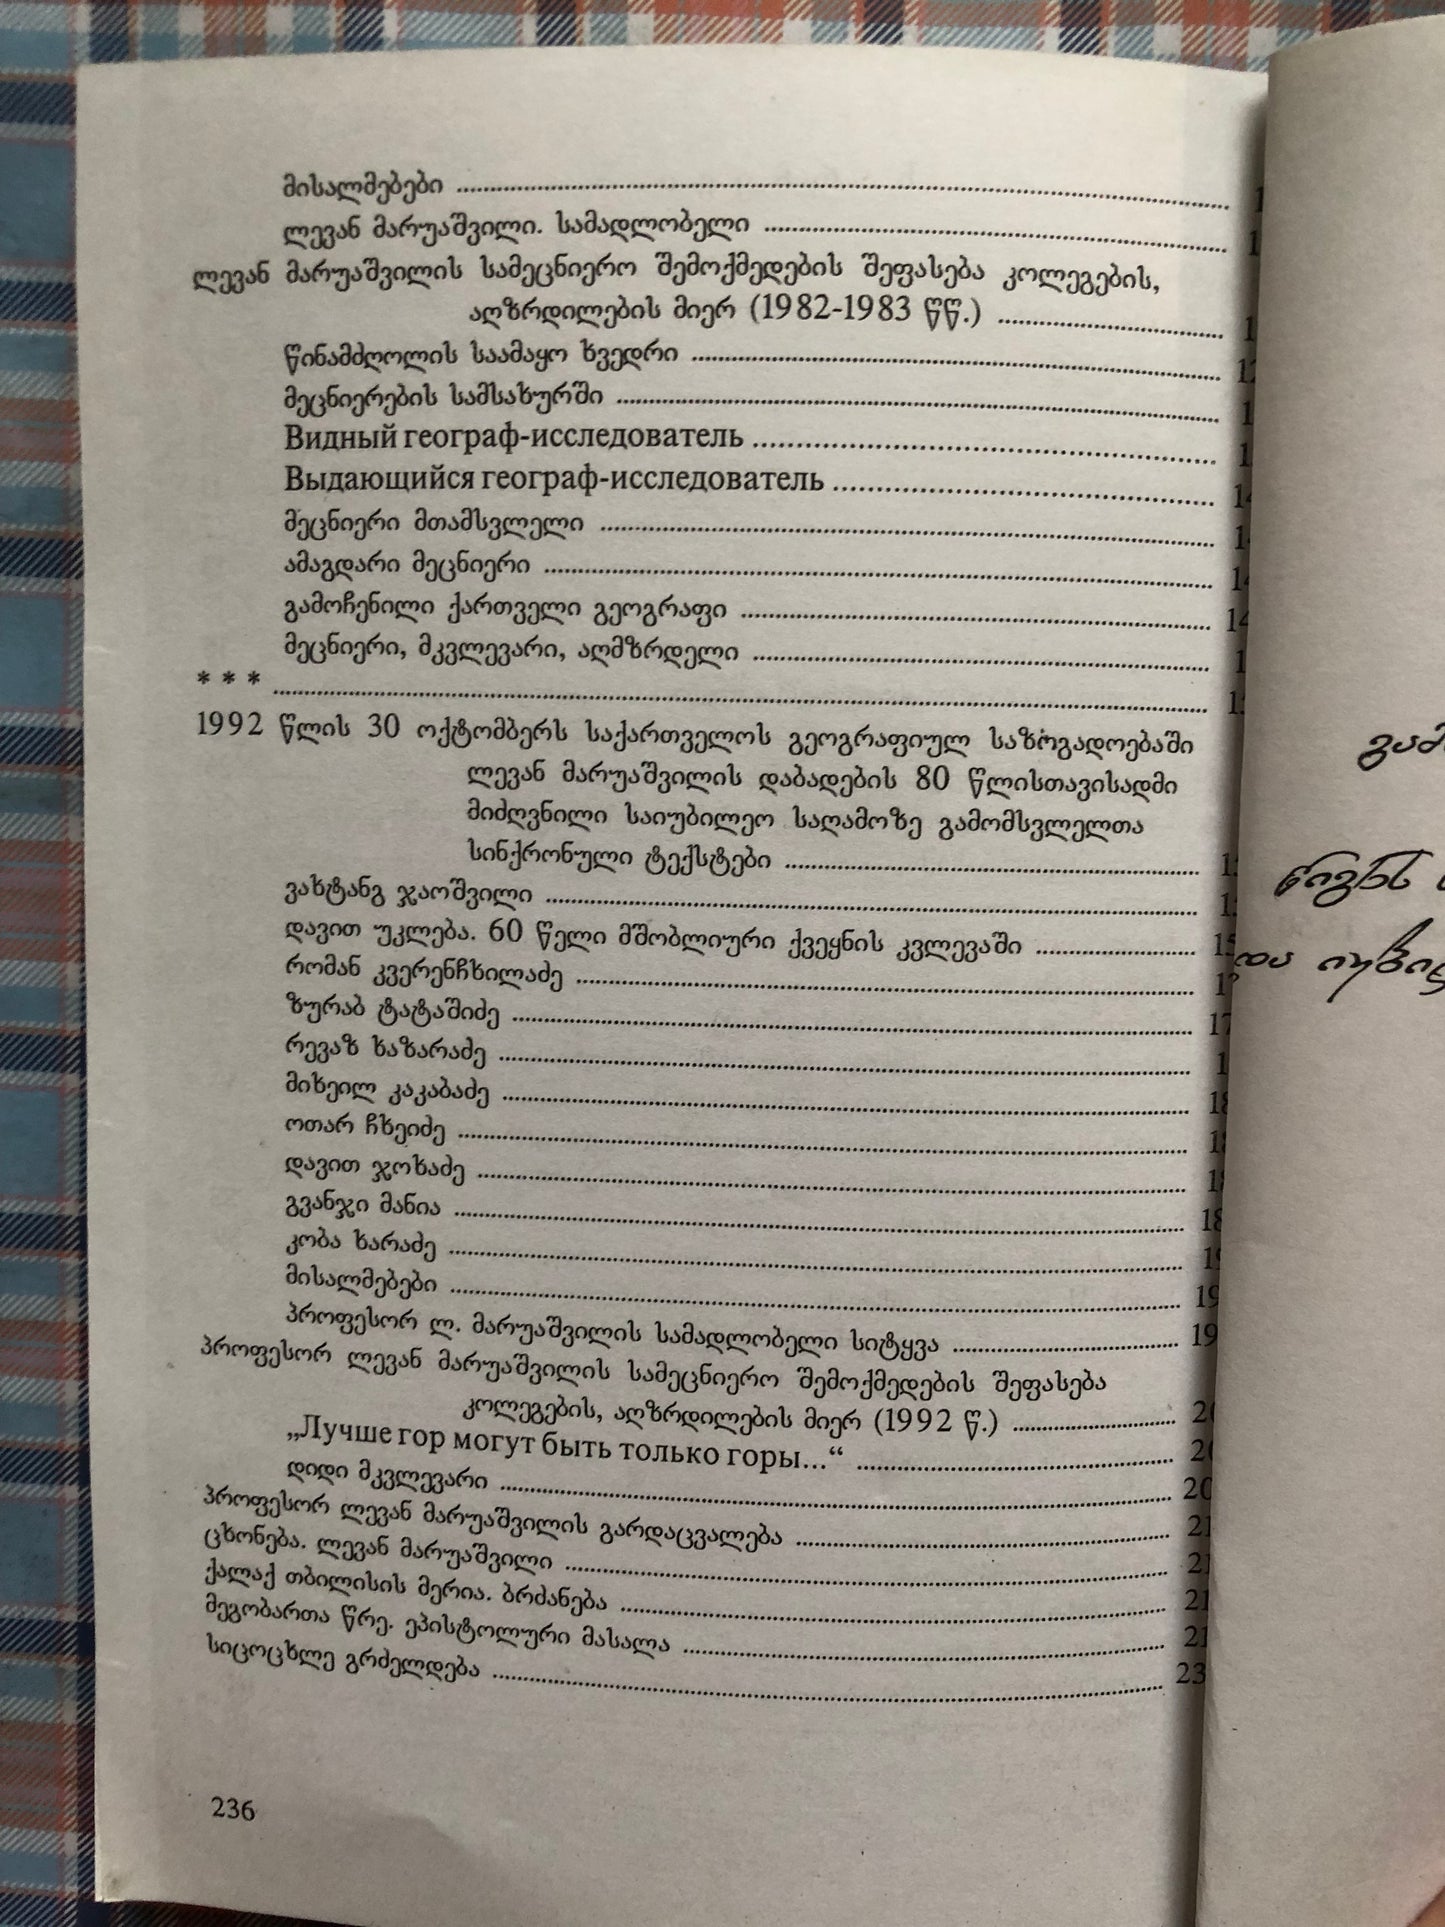 მისალმებები
ლევან მარუაშვილი. სამადლობელი
ლევან მარუაშვილის სამეცნიერო შემოქმედების შეფასება კოლეგების,
აღზრდილების მიერ (1982-1983 წწ.)
წინამძღოლის საამაყო ხვედრი
მეცნიერების სამსახურში
Видный географ-исследователь
Выдающийся географ-исследователь
მეცნიერი მთამსვლელი
ამაგდარი მეცნიერი
გამოჩენილი ქართველი გეოგრაფი
მეცნიერი, მკვლევარი, აღმზრდელი
* * *
1992 წლის 30 ოქტომბერს საქართველოს გეოგრაფიულ საზოგადოებაში
ლევან მარუაშვილის დაბადების 80 წლისთავისადმი
მიძღვნილი საიუბილეო საღამოზე გამომსვლელთა
სინქრონული ტექსტები
ვახტანგ ჯაოშვილი
დავით უკლება. 60 წელი მშობლიური ქვეყნის კვლევაში
რომან კვერენჩხილაძე
ზურაბ ტატაშიძე
რევაზ ხაზარაძე
მიხეილ კაკაბაძე
ოთარ ჩხეიძე
დავით ჯოხაძე
გვანჯი მანია
კობა ხარაძე
მისალმებები
პროფესორ ლ. მარუაშვილის სამადლობელი სიტყვა
პროფესორ ლევან მარუაშვილის სამეცნიერო შემოქმედების შეფასება
კოლეგების, აღზრდილების მიერ (1992 წ.)
„Лучше гор могут быть только горы...“
დიდი მკვლევარი
პროფესორ ლევან მარუაშვილის გარდაცვალება
ცხონება. ლევან მარუაშვილი
ქალაქ თბილისის მერია. ბრძანება
მეგობართა წრე. ეპისტოლური მასალა
სიცოცხლე გრძელდება
236
წიგნს
და